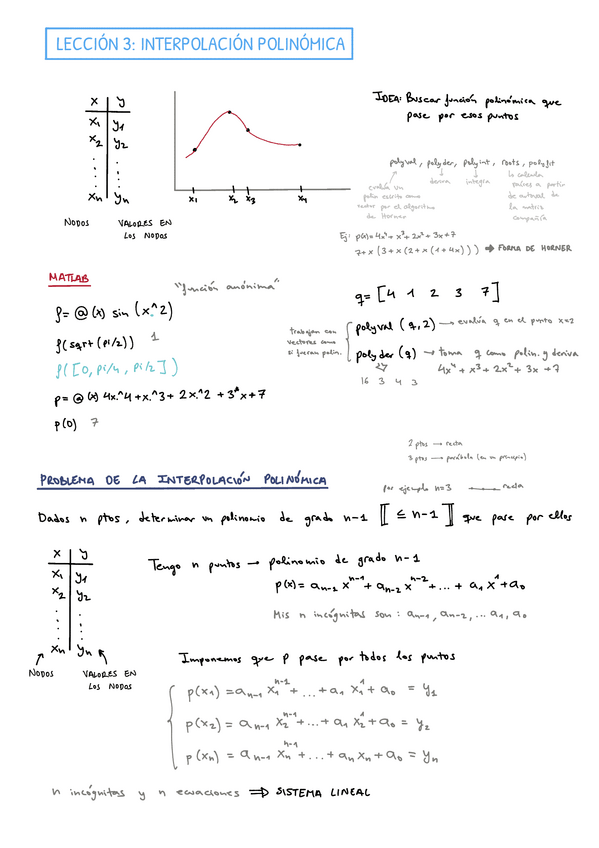 LECCIÓN 3: INTERPOLACIÓN POLINÓMICA
x y
x1 y1
x2 y2
xn yn
NODOS
VALORES EN
LOS NODOS
x1 x2 x3 x4
IDEA: Buscar función polinómica que
pase por esos puntos
polyval, polyder, polyint, roots, polyfit
evalúa un
polin escrito como
vector por el algoritmo
de Horner
deriva
integra
lo calcula
raíces a partir
de autoval de
la matriz
compañía
Ej: p(x) = 4x⁴ + x³ + 2x² + 3x + 7
7 + x (3 + x (2 + x (1 + 4x))) ⇒ FORMA DE HORNER
MATLAB
"función anónima"
f = @(x) sin (x.^2)
f(sqrt(pi/2)) 1
f([0, pi/4, pi/2])
p = @(x) 4x.^4 + x.^3 + 2x.^2 + 3*x + 7
p(0) 7
q = [4 1 2 3 7]
trabajan con
vectores como
si fueran polin.
polyval (q, 2) → evalúa q en el punto x=2
polyder (q) → toma q como polin. y deriva
4x⁴ + x³ + 2x² + 3x + 7
16 3 4 3
2 ptos → recta
3 ptos → parábola (en un principio)
PROBLEMA DE LA INTERPOLACIÓN POLINÓMICA
por ejemplo n=3 recta
Dados n ptos, determinar un polinomio de grado n-1 [[ ≤ n-1 ]] que pase por ellos
x y
x1 y1
x2 y2
xn yn
NODOS
VALORES EN
LOS NODOS
Tengo n puntos → polinomio de grado n-1
p(x) = aₙ₋₂ xⁿ⁻¹ + aₙ₋₂ xⁿ⁻² + ... + a₁ x¹ + a₀
Mis n incógnitas son: aₙ₋₁, aₙ₋₂, ... a₁, a₀
Imponemos que p pase por todos los puntos
p(x₁) = aₙ₋₁ x₁ⁿ⁻¹ + ... + a₁ x₁¹ + a₀ = y₁
p(x₂) = aₙ₋₁ x₂ⁿ⁻¹ + ... + a₁ x₂¹ + a₀ = y₂
p(xₙ) = aₙ₋₁ xₙⁿ⁻¹ + ... + aₙ xₙ + a₀ = yₙ
n incógnitas y n ecuaciones ⇒ SISTEMA LINEAL